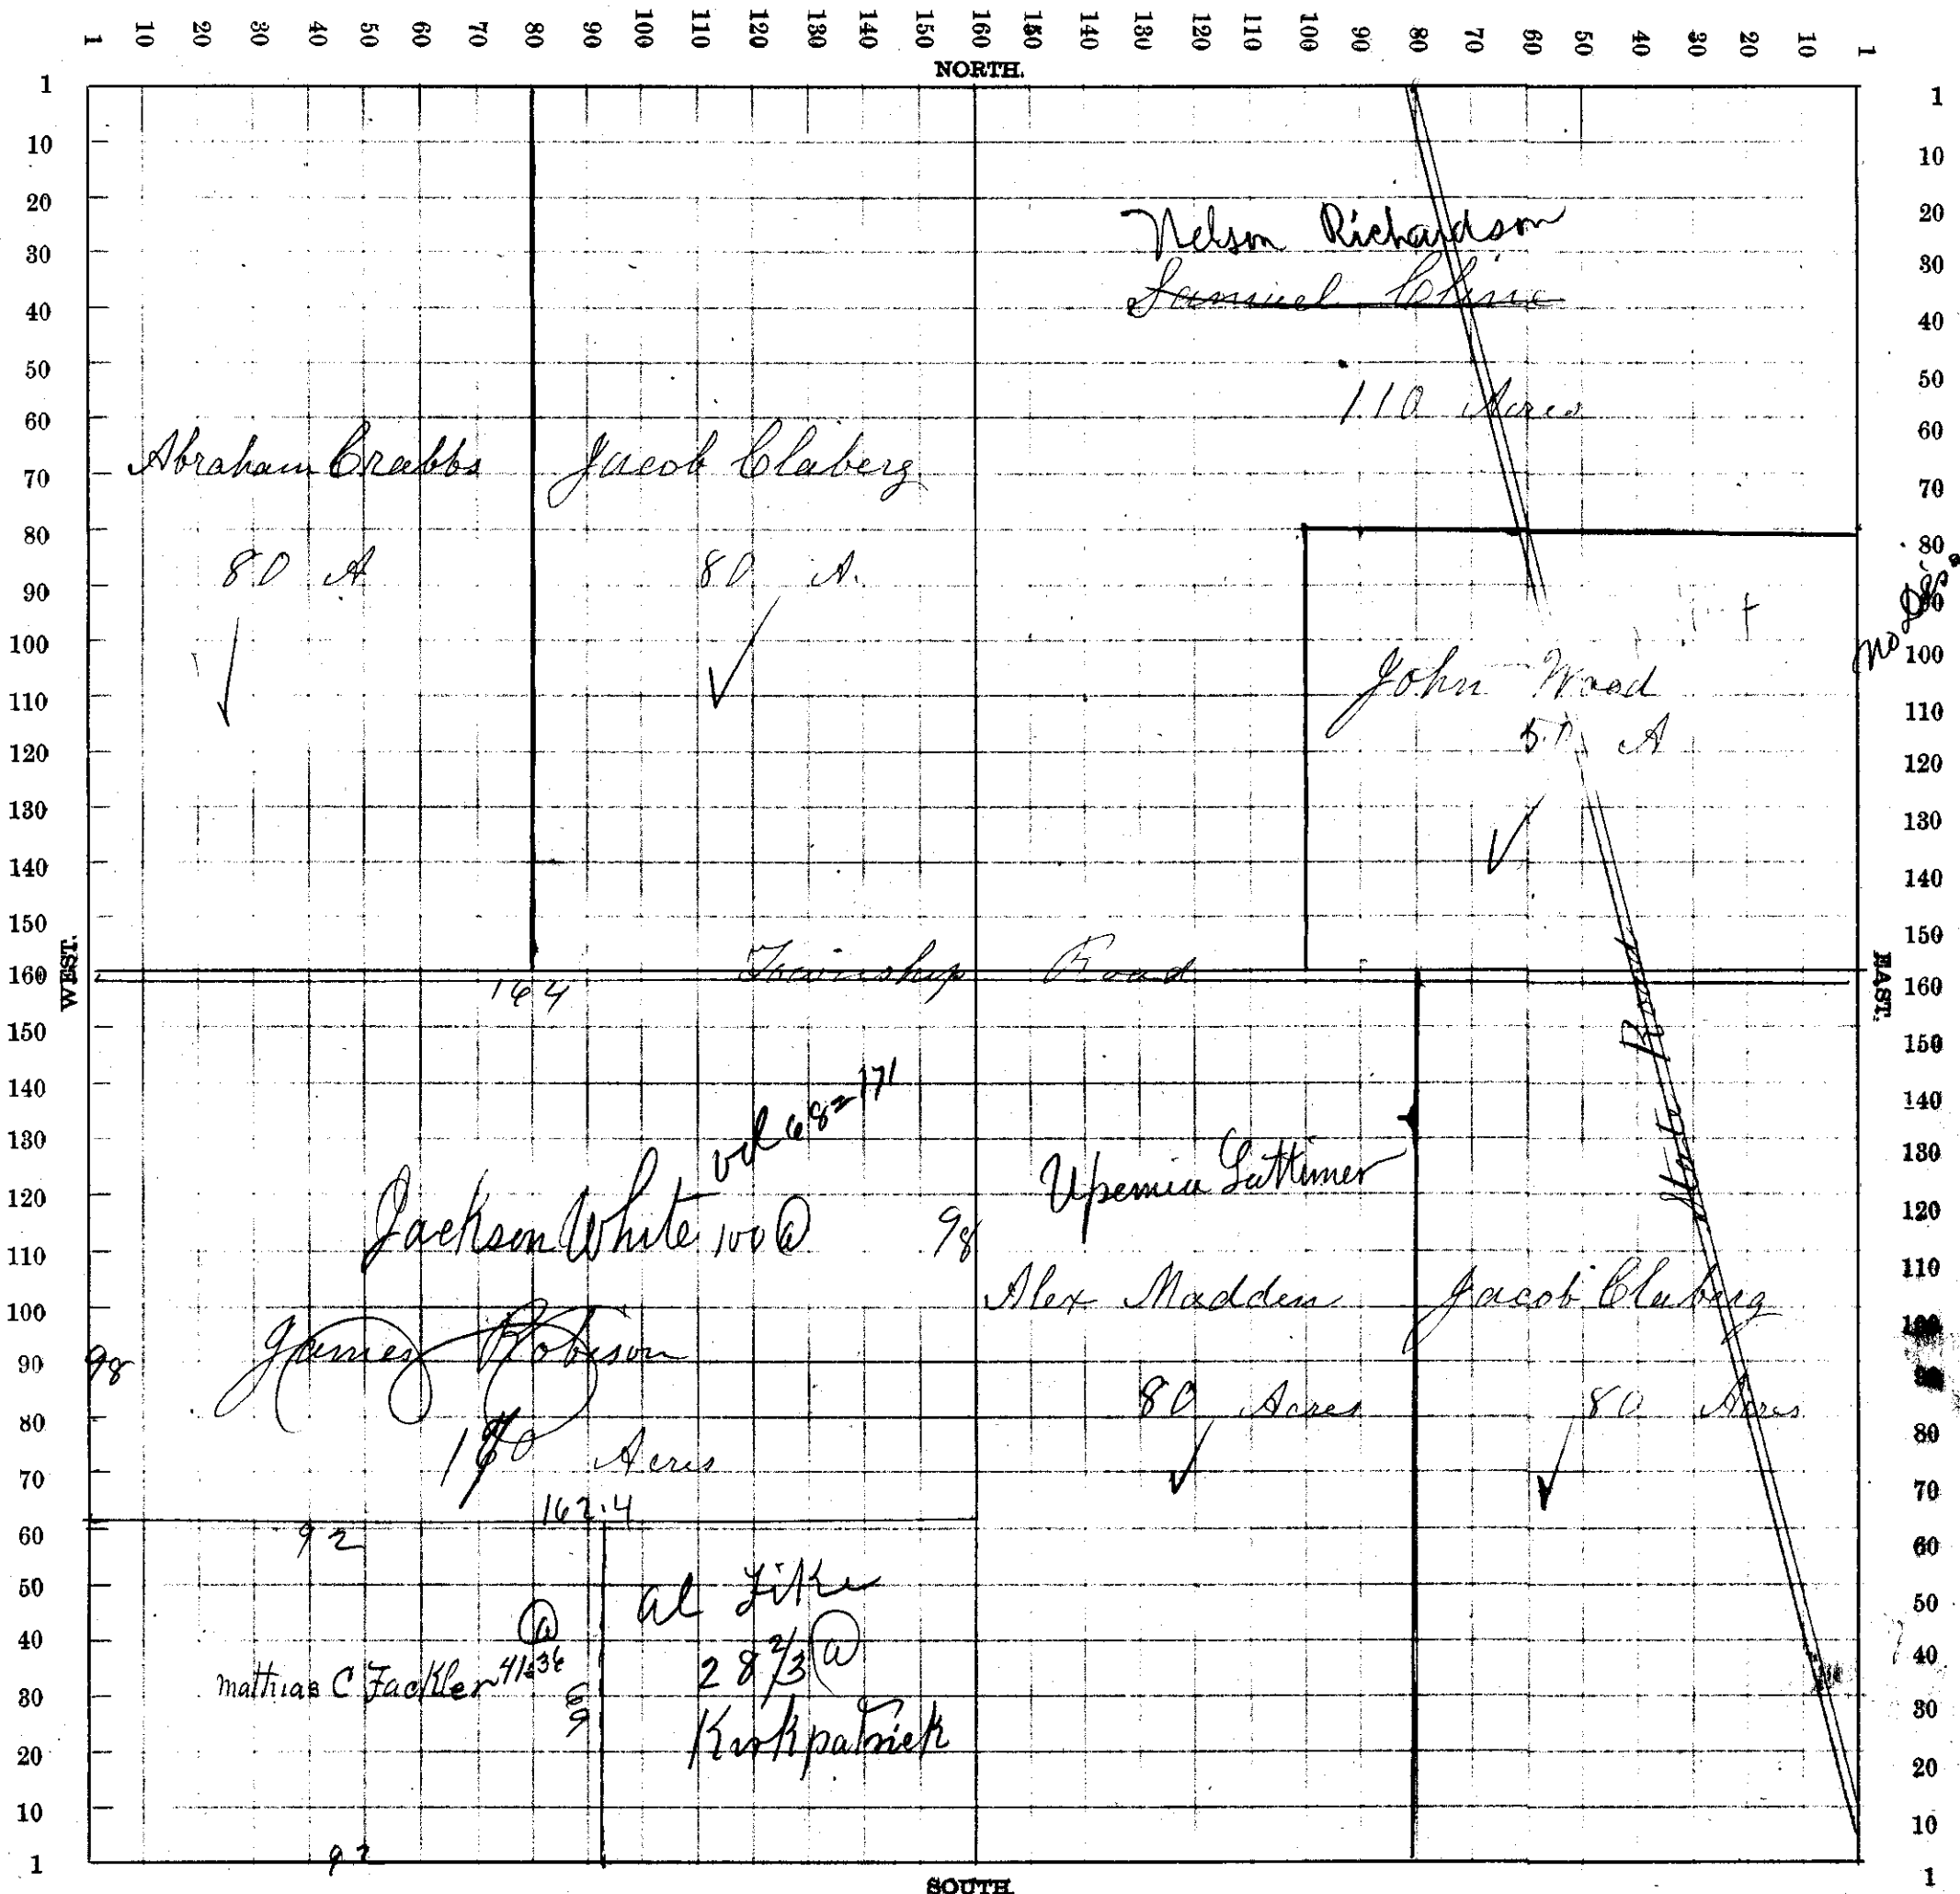 1 10 20 30 40 50 60 70 80 90 100 110 120 130 140 150 160 150 140 130 120 110 100 90 80 70 60 50 40 30 20 10 1
NORTH.
1 10 20 30 40 50 60 70 80 90 100 110 120 130 140 150 160 150 140 130 120 110 100 90 80 70 60 50 40 80 20 10 1
WEST.
Nelson Richardson
Samuel Cline
110 Acres
Abraham Crabbs
80 A
Jacob Claberg
80 A.
John Wood
50 A
Township Road
164
State Road
vol 68 = 171
Jackson White 100 @
98
Upemia Lattimer
Alex Madden
80 Acres
Jacob Claberg
80 Acres
98
James Robison
Acres
162.4
92
@
Mathias C Fackler 41
69
Al Fike
28 2/3 @
Kirkpatrick
92
1 10 20 30 40 50 60 70 80 90 100 110 120 130 140 150 160 150 140 130 120 110 100 90 80 70 60 50 40 30 20 10 1
no
EAST.
SOUTH.